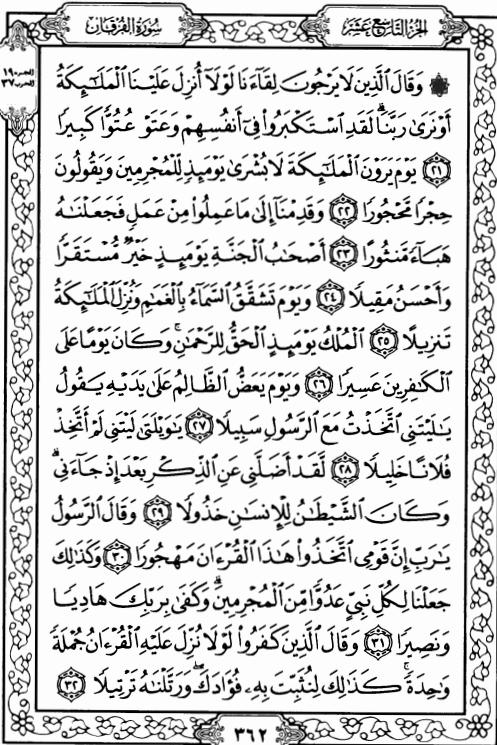 الجزء التاسع عشر
سورة الفرقان
الحزب ٣٧
۞ وَقَالَ ٱلَّذِينَ لَا يَرْجُونَ لِقَآءَنَا لَوْلَآ أُنزِلَ عَلَيْنَا ٱلْمَلَٰٓئِكَةُ
أَوْ نَرَىٰ رَبَّنَا ۗ لَقَدِ ٱسْتَكْبَرُوا۟ فِىٓ أَنفُسِهِمْ وَعَتَوْ عُتُوًّا كَبِيرًا
٢١ يَوْمَ يَرَوْنَ ٱلْمَلَٰٓئِكَةَ لَا بُشْرَىٰ يَوْمَئِذٍ لِّلْمُجْرِمِينَ وَيَقُولُونَ
حِجْرًا مَّحْجُورًا ٢٢ وَقَدِمْنَآ إِلَىٰ مَا عَمِلُوا۟ مِنْ عَمَلٍ فَجَعَلْنَٰهُ
هَبَآءً مَّنثُورًا ٢٣ أَصْحَٰبُ ٱلْجَنَّةِ يَوْمَئِذٍ خَيْرٌ مُّسْتَقَرًّا
وَأَحْسَنُ مَقِيلًا ٢٤ وَيَوْمَ تَشَقَّقُ ٱلسَّمَآءُ بِٱلْغَمَٰمِ وَنُزِّلَ ٱلْمَلَٰٓئِكَةُ
تَنزِيلًا ٢٥ ٱلْمُلْكُ يَوْمَئِذٍ ٱلْحَقُّ لِلرَّحْمَٰنِ ۚ وَكَانَ يَوْمًا عَلَى
ٱلْكَٰفِرِينَ عَسِيرًا ٢٦ وَيَوْمَ يَعَضُّ ٱلظَّالِمُ عَلَىٰ يَدَيْهِ يَقُولُ
يَٰلَيْتَنِى ٱتَّخَذْتُ مَعَ ٱلرَّسُولِ سَبِيلًا ٢٧ يَٰوَيْلَتَىٰ لَيْتَنِى لَمْ أَتَّخِذْ
فُلَانًا خَلِيلًا ٢٨ لَّقَدْ أَضَلَّنِى عَنِ ٱلذِّكْرِ بَعْدَ إِذْ جَآءَنِى ۗ
وَكَانَ ٱلشَّيْطَٰنُ لِلْإِنسَٰنِ خَذُولًا ٢٩ وَقَالَ ٱلرَّسُولُ
يَٰرَبِّ إِنَّ قَوْمِى ٱتَّخَذُوا۟ هَٰذَا ٱلْقُرْءَانَ مَهْجُورًا ٣٠ وَكَذَٰلِكَ
جَعَلْنَا لِكُلِّ نَبِىٍّ عَدُوًّا مِّنَ ٱلْمُجْرِمِينَ ۗ وَكَفَىٰ بِرَبِّكَ هَادِيًا
وَنَصِيرًا ٣١ وَقَالَ ٱلَّذِينَ كَفَرُوا۟ لَوْلَا نُزِّلَ عَلَيْهِ ٱلْقُرْءَانُ جُمْلَةً
وَٰحِدَةً ۚ كَذَٰلِكَ لِنُثَبِّتَ بِهِۦ فُؤَادَكَ ۖ وَرَتَّلْنَٰهُ تَرْتِيلًا ٣٢
٣٦٢